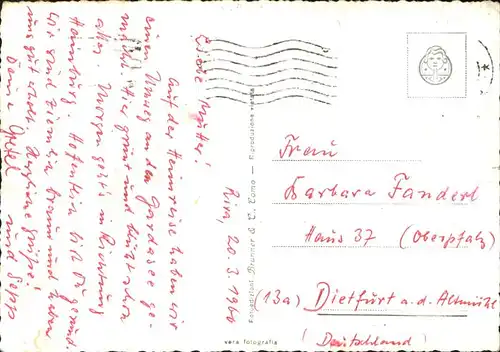 Riva, 20.3.1960
Liebe Mutter!
Auf der Heimreise haben wir
einen Umweg an den Gardasee ge-
macht. Hier grünt und blüht schon
alles. Morgen geht's in Richtung
Hamburg. Hoffentlich bist Du gesund
wir sind ziemlich braun und haben
uns gut erholt. Herzliche Grüße!
Deine Gretel und Sepp
Fotoedizioni Brunner & C. Como - Riproduzione vietata
vera fotografia
Frau
Barbara Fanderl
Haus 37 (Oberpfalz)
(13a) Dietfurt a.d. Altmühl
(Deutschland)